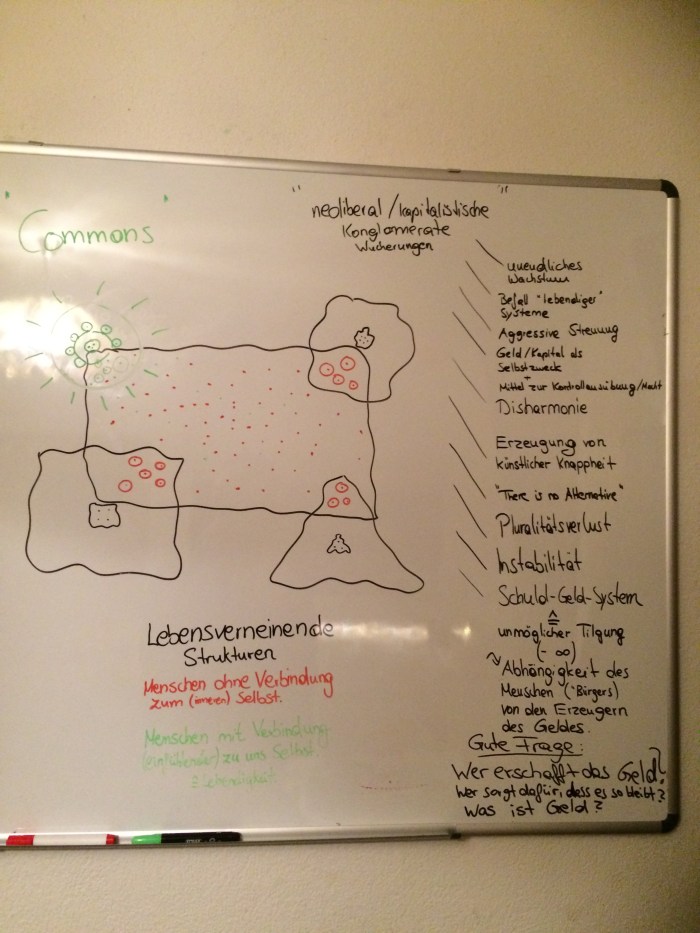 "Commons"
"neoliberal/kapitalistische"
Konglomerate
Wucherungen
unendliches
Wachstum
Befall "lebendiger"
Systeme
Aggressive Streuung
Geld/Kapital als
Selbstzweck
+
Mittel zur Kontrollausübung/Macht
Disharmonie
Erzeugung von
künstlicher Knappheit
"There is no Alternative"
Pluralitätsverlust
Instabilität
Schuld-Geld-System
≙
unmöglicher Tilgung
(- ∞)
Abhängigkeit des
Menschen ("Bürgers)
von den Erzeugern
des Geldes.
Gute Frage:
Wer erschafft das Geld?
Wer sorgt dafür, dass es so bleibt?
Was ist Geld?
Lebensverneinende
Strukturen
Menschen ohne Verbindung
zum (inneren) Selbst.
Menschen mit Verbindung
zu uns Selbst
≙ Lebendigkeit